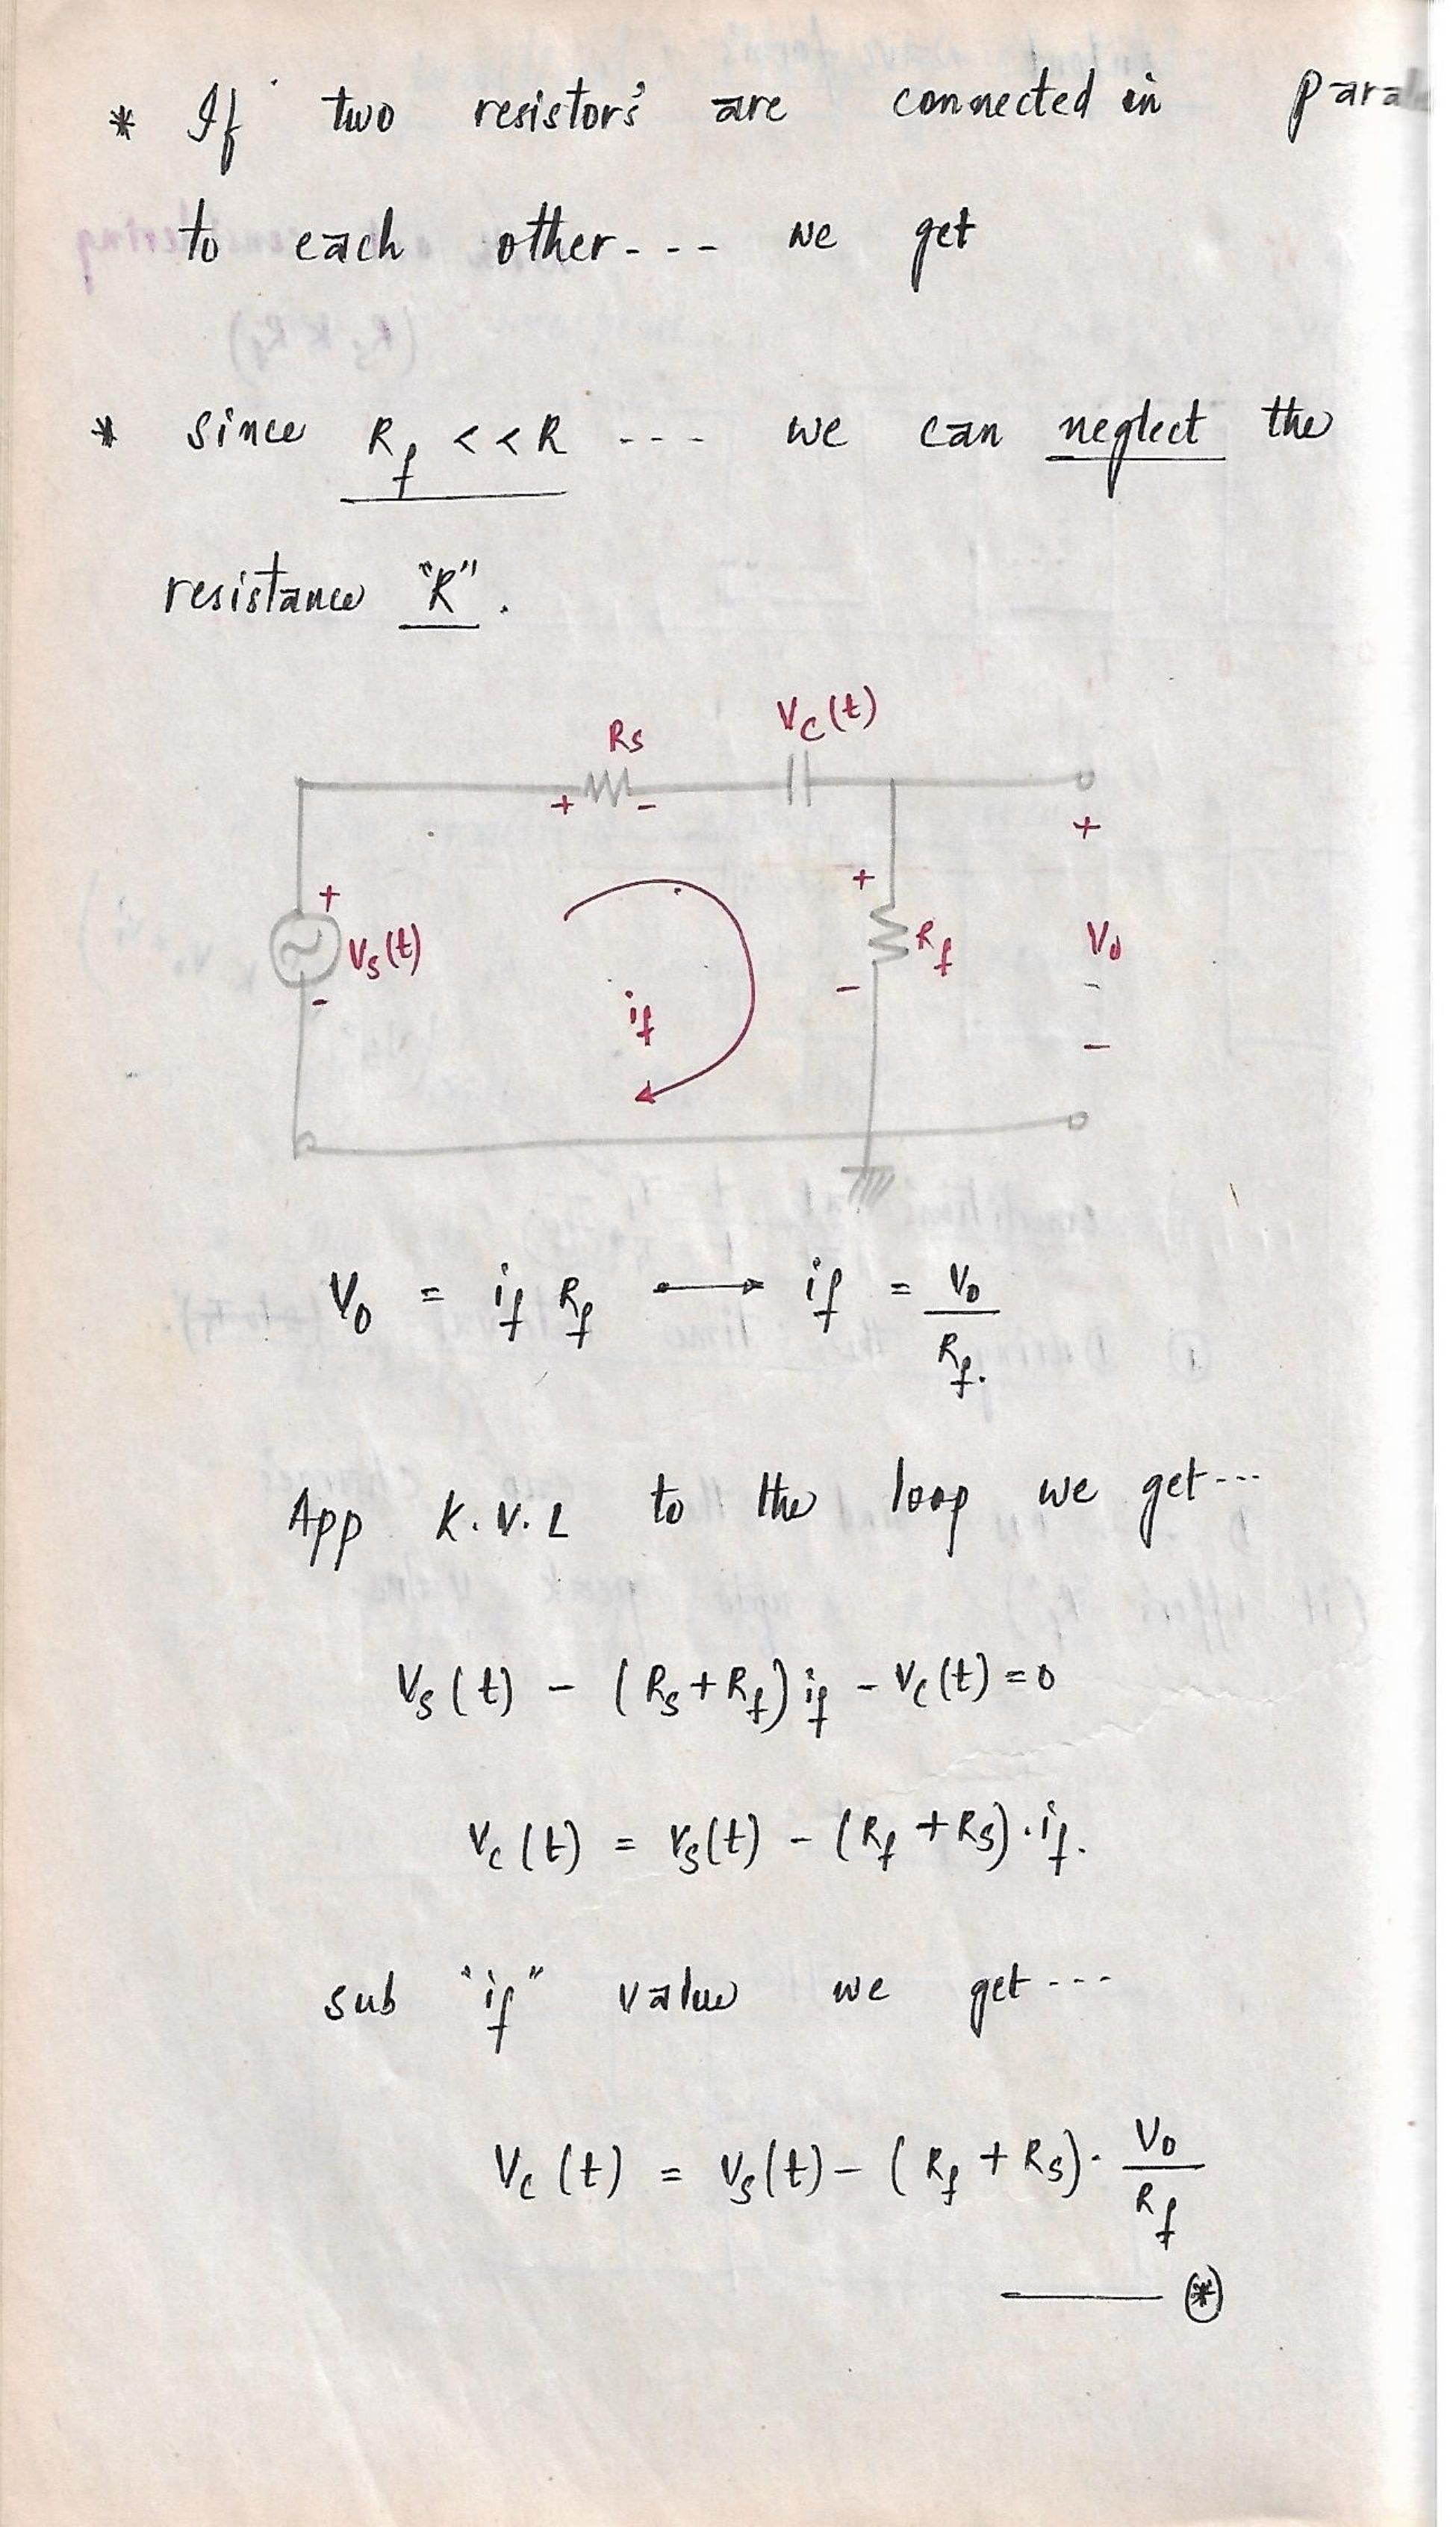 * If two resistor's are connected in
to each other - - - we get
* since Rf << R - - - we can neglect the
resistance "R".
Vc(t)
Rs
+ -
+
+
+
Vs(t)
Rf
V0
-
if
-
-
V0 = if Rf → if = V0/Rf.
App K.V.L to the loop we get ---
Vs(t) - (Rs+Rf) if - Vc(t) = 0
Vc(t) = Vs(t) - (Rf + Rs) · if.
sub "if" value we get ---
Vc(t) = Vs(t) - (Rf + Rs) · V0/Rf
—— (*)